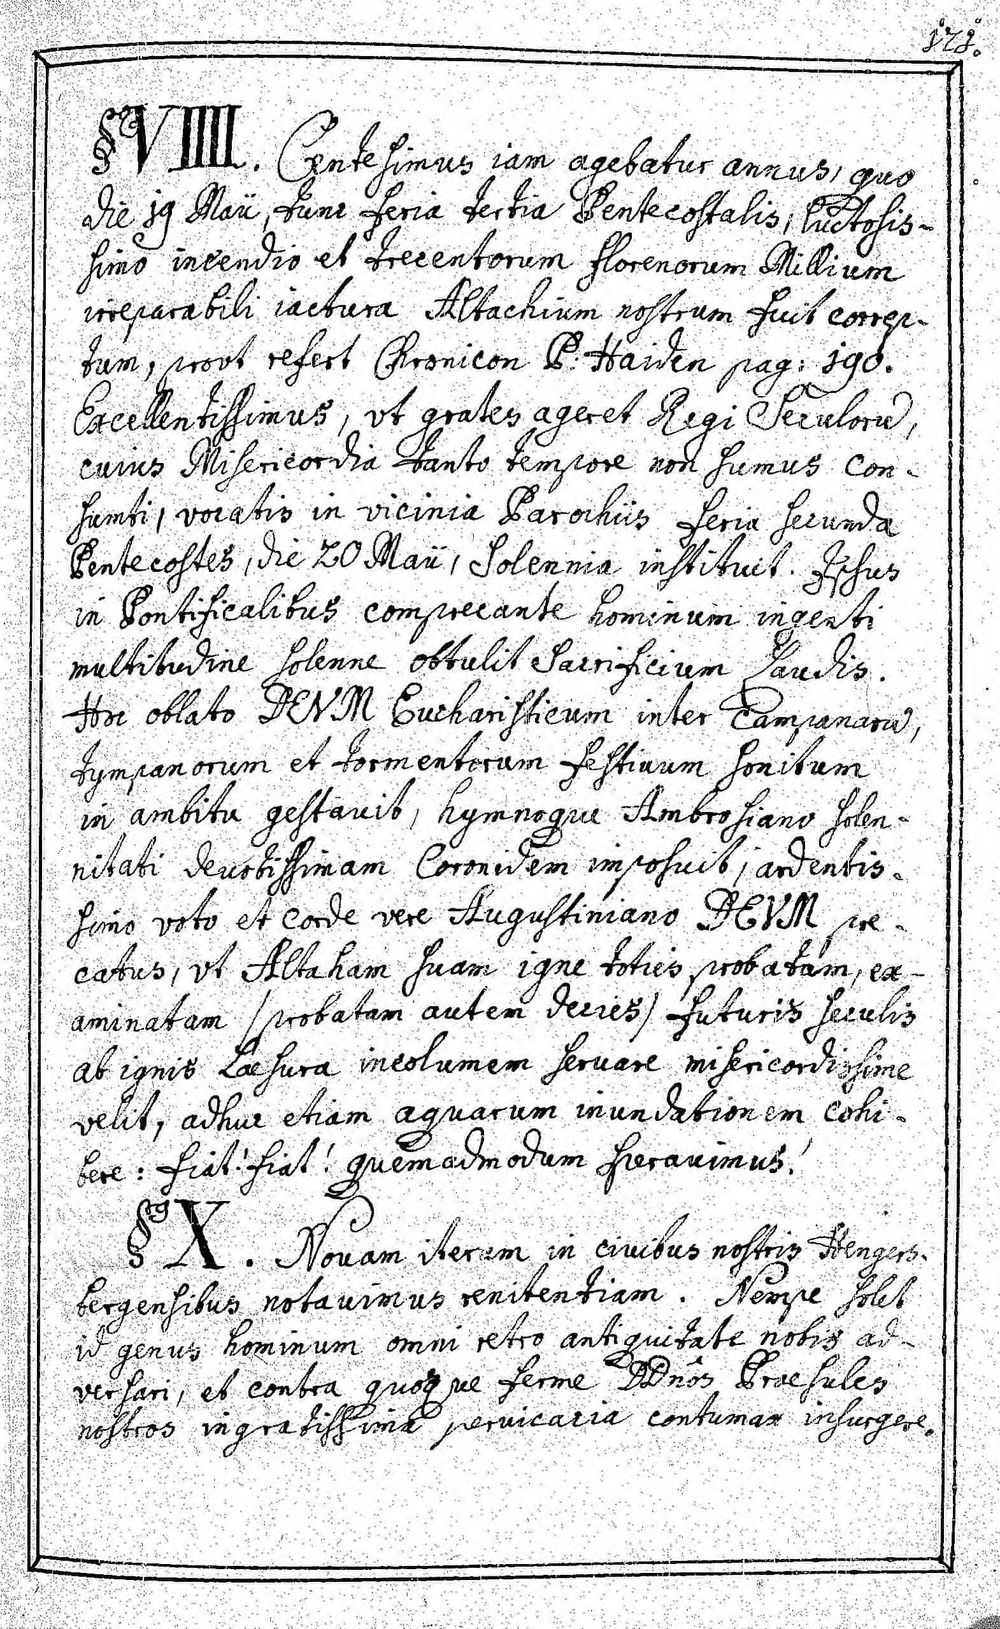 171.
§us VIIII. Centesimus iam agebatur annus, quo
die 19 Maii, tunc feria tertia Pentecostalis, luctosis-
simo incendio et trecentorum florenorum Millium
irreparabili iactura Altachium nostrum fuit correp-
tum, provt refert Chronicon P. Haiden pag: 190.
Excellentissimus, vt grates ageret Regi Seculorũ,
cuius Misericordia tanto tempore non sumus con-
sumti, vocatis in vicinia Parochiis feria secunda
Pentecostes, die 20 Maii, Solennia instituit. Ipsus
in Pontificalibus comprecante hominum ingenti
multitudine solenne obtulit Sacrificium Laudis.
Hoc oblato DEVM Eucharisticum inter Campanarũ,
tympanorum et tormentorum festiuum sonitum
in ambitu gestauit, hymnoque Ambrosiano solen-
nitati deuotissimam Coronidem imposuit, ardentis-
simo voto et corde vere Augustiniano DEVM pre-
catus, vt Altaham suam igne toties probatam, ex-
aminatam /probatam autem decies/ futuris seculis
ab ignis Laesura incolumem seruare misericordissime
velit, adhuc etiam aquarum inundationem cohi-
bere: fiat! fiat! quemadmodum sperauimus!
§us X. Nouam iterum in ciuibus nostris Hengers-
bergensibus notauimus renitentiam. Nempe solet
id genus hominum omni retro antiquitate nobis ad-
versari, et contra quosque ferme DDnôs Praesules
nostros ingratissima peruicacia contumax insurgere.